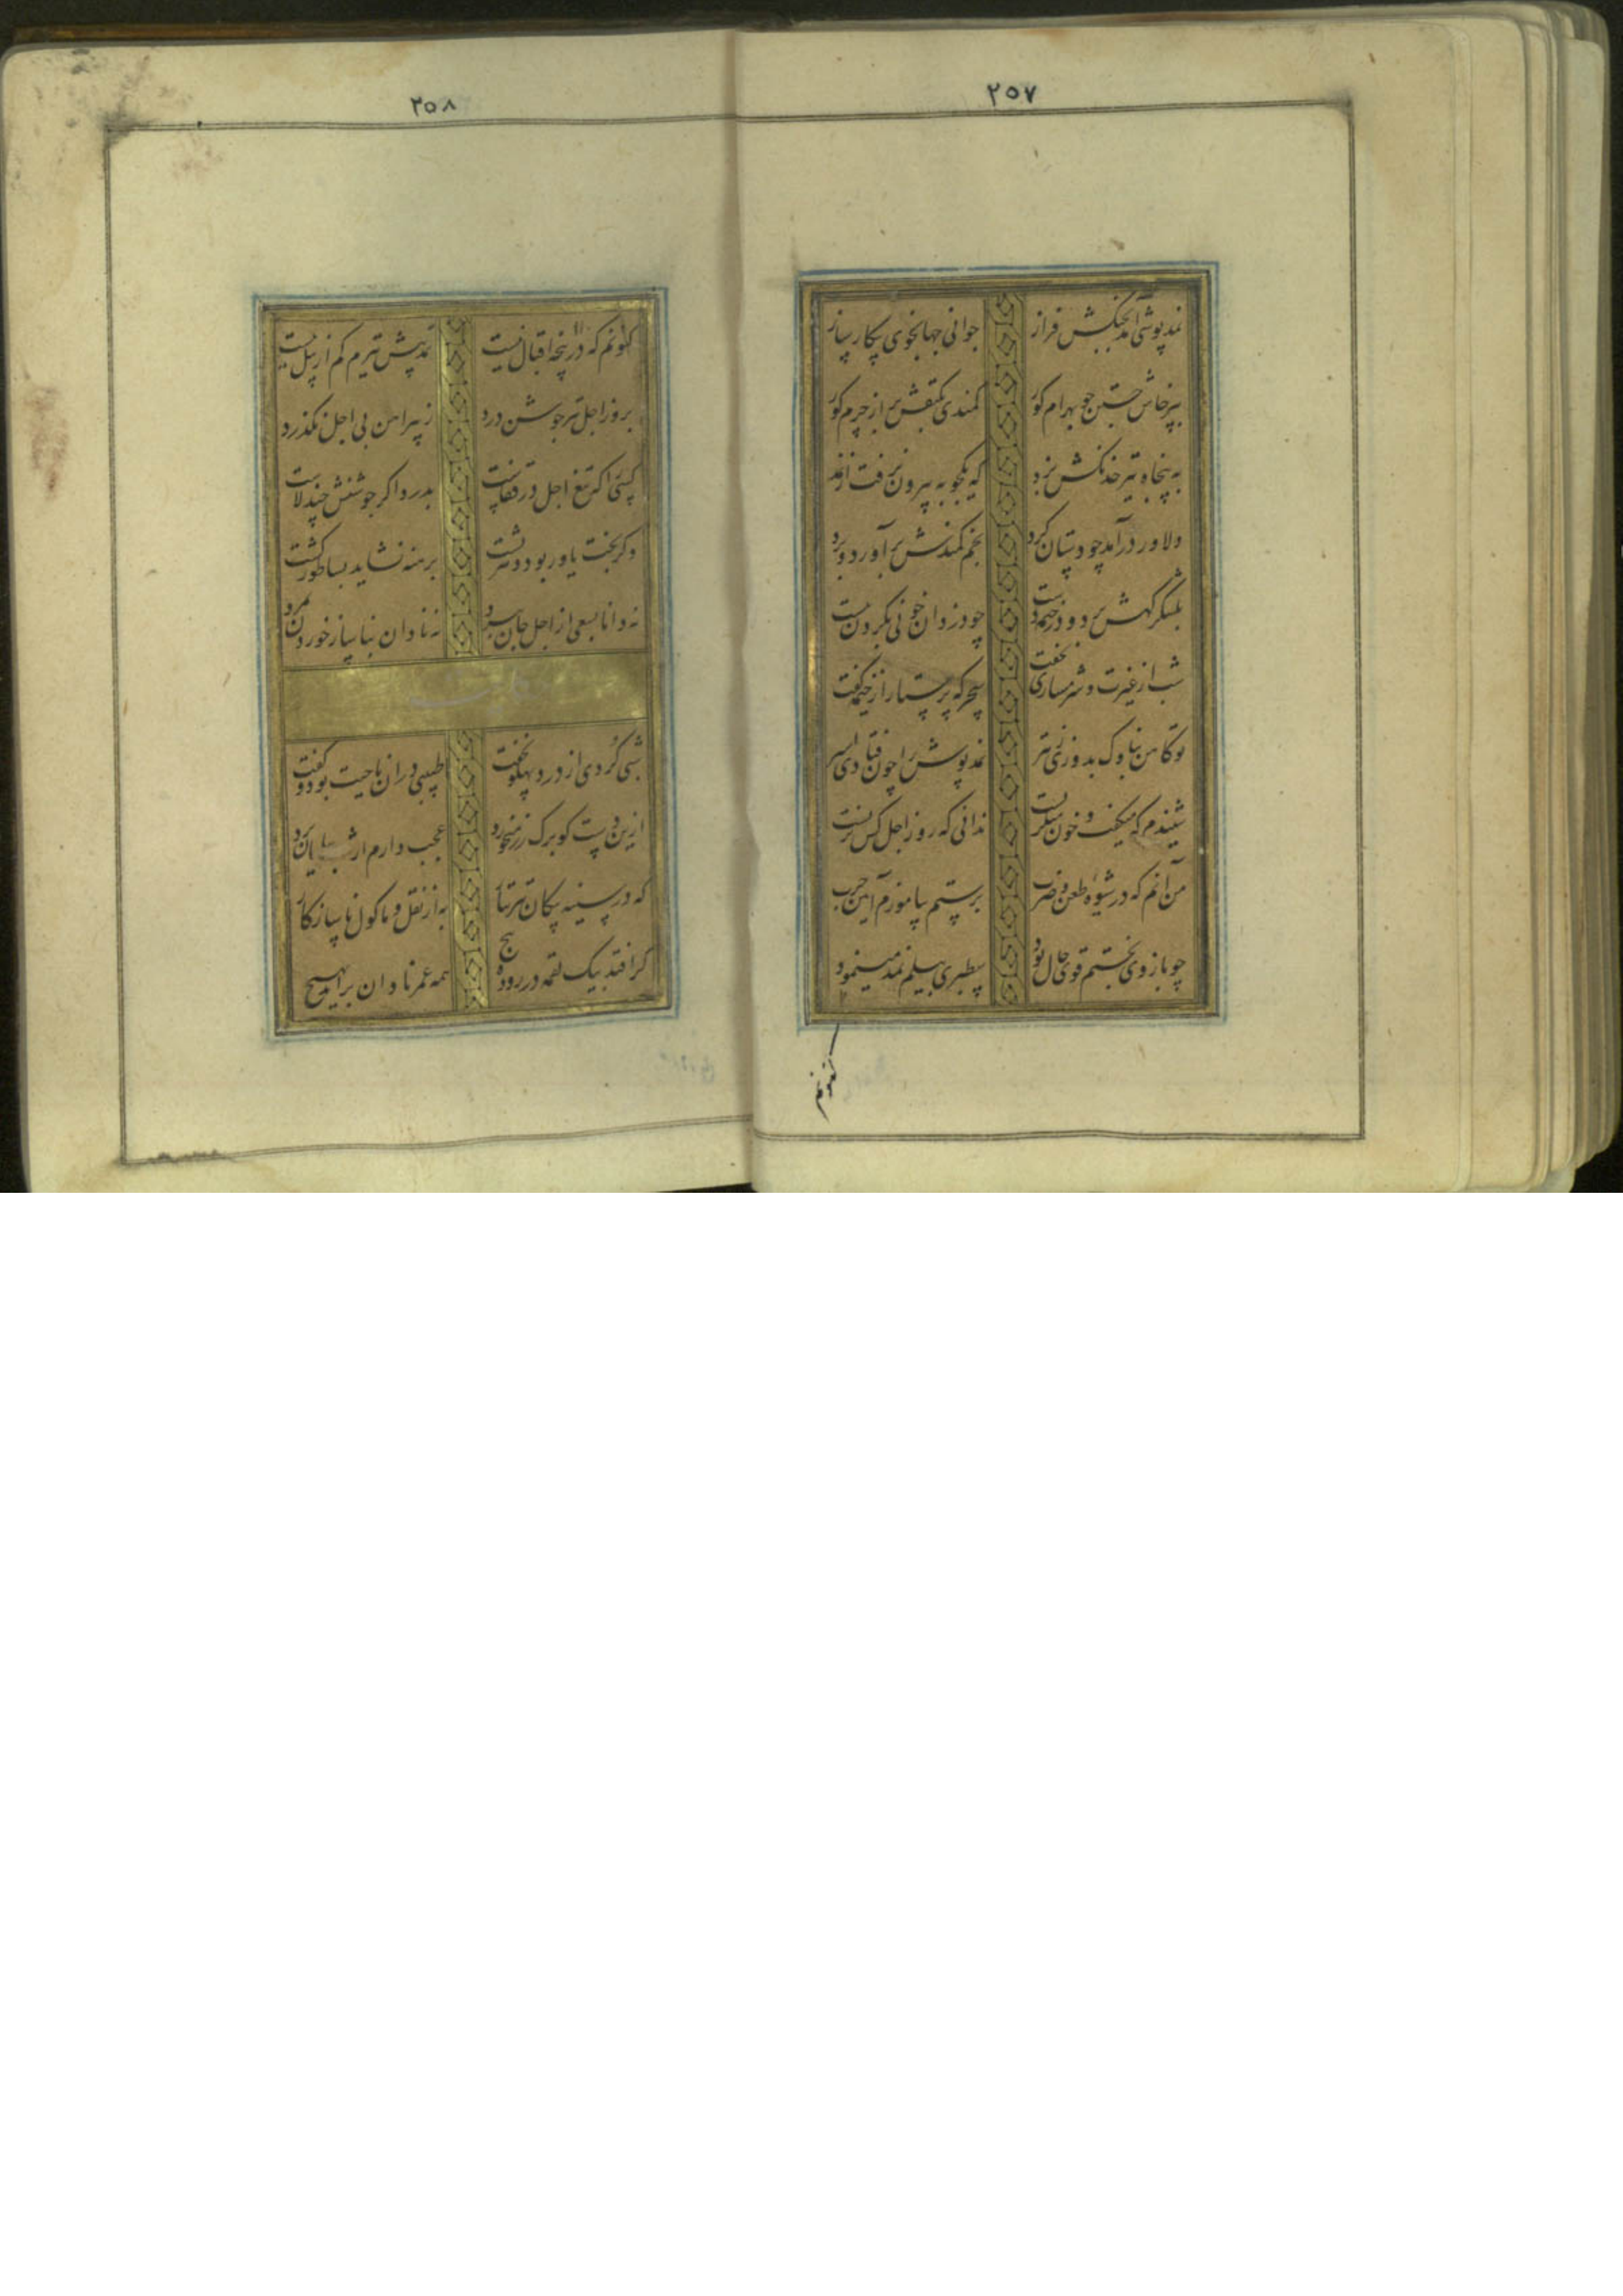 ۲۵۷
نمدپوشی آمد بجنکش فراز جوانی جهانجوی پیکار ساز
بپرخاش جستن چو بهرام کور کمندی بکتفش بر از چرم کور
به پنجاه تیر خدنکش بزد که یکچوبه بیرون نرفت از نمد
دلاور درآمد چو دستان کرد بخم کمندش برآورد و برد
بلشکر کهش برد و در خیمه دست چو دزدان خونی بکردن ببست
شب از غیرت و شرمساری نخفت سحرکه پرستار از خیمه کفت
توکاهن بناوک بدوزی و تیر نمدپوش را چون فتادی اسیر
شنیدم که میکفت و خون میکریست ندانی که روز اجل کس نزیست
من آنم که در شیوه طعن و ضرب برستم بیاموزم آیین حرب
چو بازوی بختم قوی حال بود سطبری بیلم نمد مینمود
کنونم
۲۵۸
کنونم که در پنجه اقبال نیست نمد پیش تیرم کم از پیل نیست
بروز اجل تیر جوشن درد ز پیراهن بی اجل نکذرد
کسی را که تیغ اجل در قفاست بدرد اکر جوشنش چند لاست
وکر بخت یاور بود دهر پشت برهنه نشاید بساطور کشت
نه دانا بسعی از اجل جان ببرد نه نادان بناساز خوردن بمرد
حکایت
شبی کردی از درد پهلو نخفت طبیبی در آن ناحیت بود و کفت
ازین دست کو برک رز میخورد عجب دارم ار شب بپایان برد
که در سینه پیکان تیر تتار به از نقل و ماکول ناسازکار
کر افتد بیک لقمه در روده پیچ همه عمر نادان برآید بهیچ